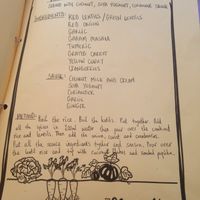 SERVED WITH COCONUT, SOYA YOGHURT, CORIANDER
INGREDIENTS:
RED LENTILS / GREEN LENTILS
RED ONION
GARLIC
GARAM MASALA
TURMERIC
GRATED CARROT
YELLOW CURRY
CRANBERRIES
SAUCE:
COCONUT MILK AND CREAM
SOYA YOGHURT
CORIANDER
GARLIC
GINGER
METHOD: Boil the rice. Boil the lentils. Put together. Add
all the spices in boiled water then pour over the combined
rice and lentils. Then add the onion, carrot and cranberries.
Put all the sauce ingredients together and season. Pour over
the lentil rice and top with coconut and smoked paprika.